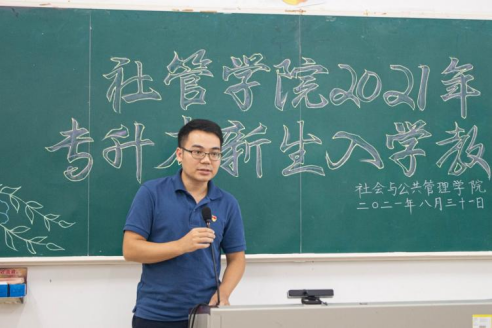 社管学院2021年
专升本新生入学教
社会与公共管理学院
二〇二一年八月三十一日